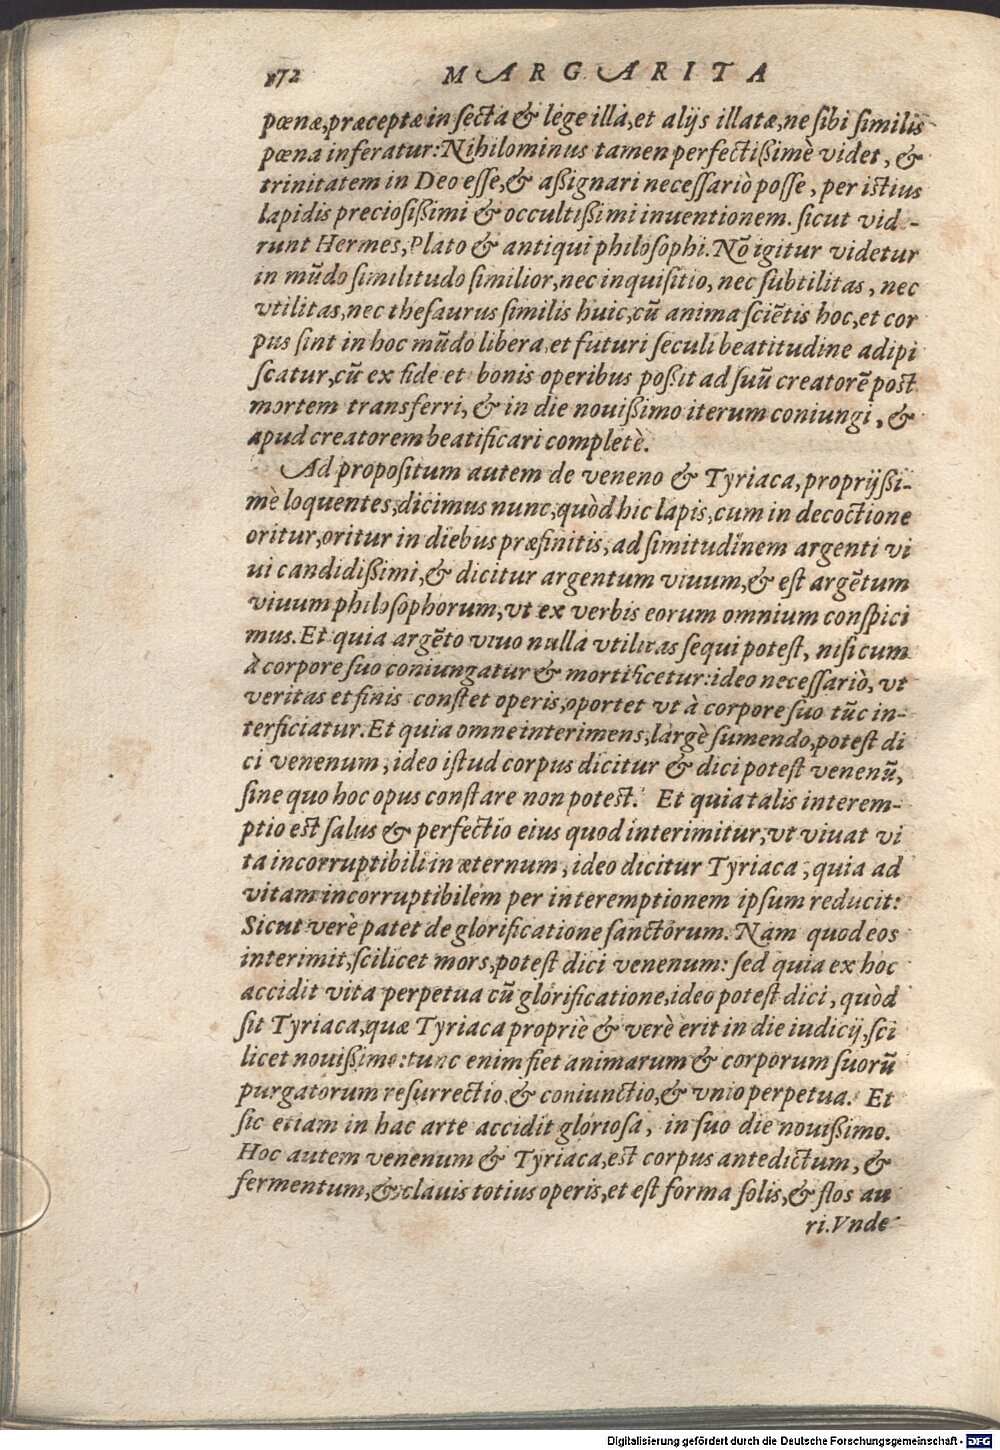 172 MARGARITA
pœnæ, præceptæ in secta & lege illa, et alijs illatæ, ne sibi similis
pœna inferatur: Nihilominus tamen perfectißimè videt, &
trinitatem in Deo esse, & aßignari necessariò posse, per istius
lapidis preciosißimi & occultißimi inuentionem. sicut vid-
runt Hermes, Plato & antiqui philosophi. Nõ igitur videtur
in mũdo similitudo similior, nec inquisitio, nec subtilitas, nec
vtilitas, nec thesaurus similis huic, cũ anima sciẽtis hoc, et cor
pus sint in hoc mũdo libera, et futuri seculi beatitudine adipi
scatur, cũ ex fide et bonis operibus poßit ad suũ creatorẽ post
mortem transferri, & in die nouißimo iterum coniungi, &
apud creatorem beatificari completè.
Ad propositum autem de veneno & Tyriaca, proprijßi-
mè loquentes, dicimus nunc, quòd hic lapis, cum in decoctione
oritur, oritur in diebus præfinitis, ad simitudinem argenti vi
ui candidißimi, & dicitur argentum viuum, & est argẽtum
viuum philosophorum, vt ex verbis eorum omnium conspici
mus. Et quia argẽto viuo nulla vtilitas sequi potest, nisi cum
à corpore suo coniungatur & mortificetur: ideo necessariò, vt
veritas et finis constet operis, oportet vt à corpore suo tũc in-
terficiatur. Et quia omne interimens, largè sumendo, potest di
ci venenum, ideo istud corpus dicitur & dici potest venenũ,
sine quo hoc opus constare non potest. Et quia talis interem-
ptio est salus & perfectio eius quod interimitur, vt viuat vi
ta incorruptibili in æternum, ideo dicitur Tyriaca, quia ad
vitam incorruptibilem per interemptionem ipsum reducit:
Sicut verè patet de glorificatione sanctorum. Nam quod eos
interimit, scilicet mors, potest dici venenum: sed quia ex hoc
accidit vita perpetua cũ glorificatione, ideo potest dici, quòd
sit Tyriaca, quæ Tyriaca propriè & verè erit in die iudicij, sci
licet nouißimo: tunc enim fiet animarum & corporum suorũ
purgatorum resurrectio & coniunctio, & vnio perpetua. Et
sic etiam in hac arte accidit gloriosa, in suo die nouißimo.
Hoc autem venenum & Tyriaca, est corpus antedictum, &
fermentum, & clauis totius operis, et est forma solis, & flos au
ri. Vnde
Digitalisierung gefördert durch die Deutsche Forschungsgemeinschaft - DFG